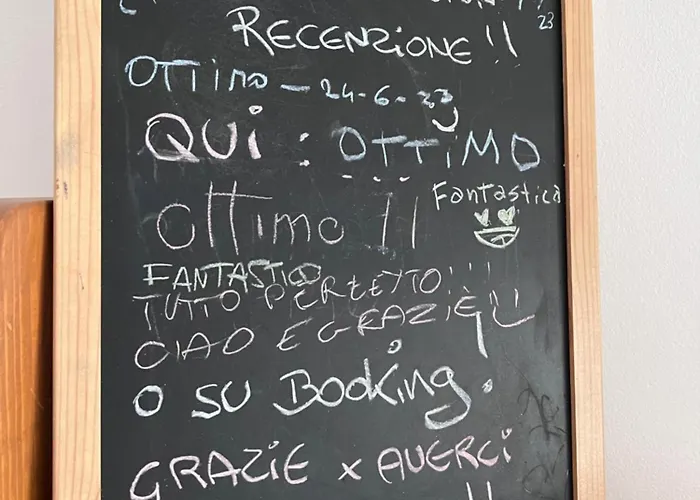 23
RECENZIONE !!
OTTIMO - 24-6-23
QUI : OTTIMO
Fantastica
Ottimo !!
FANTASTICO
TUTTO PERFETTO!!!
CIAO E GRAZIE!!
O SU BOOKING.
GRAZIE x AVERCI
!!